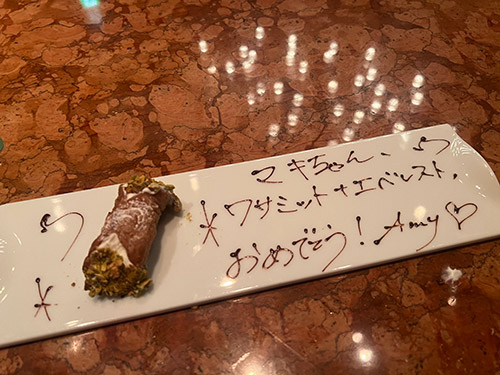 マキちゃん、
ワサミット+エベレスト,
おめでとう! Amy♡